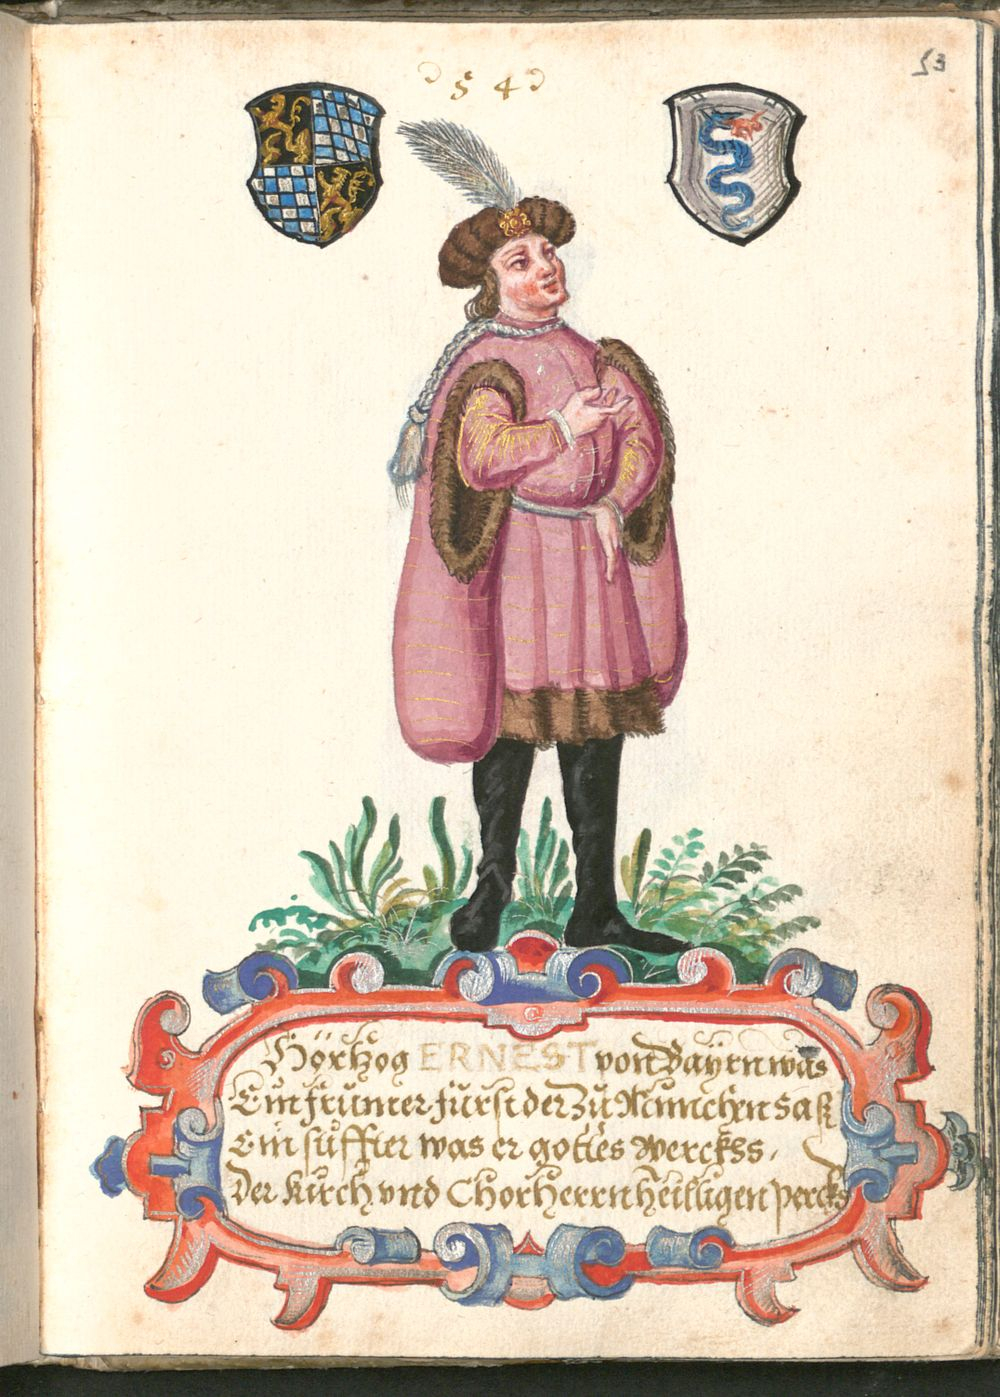 54
53
Hörtzog ERNEST von Bayrn was
Ein frumer fürst der Zu München Saß
Ein stiffter was er gottes werckhs,
Der Kirch vnd Chorherrn heilligen percks